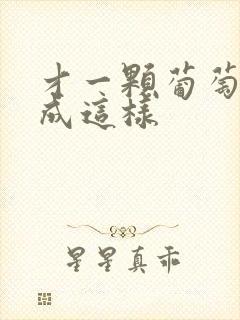 才一顆葡萄
成這樣
星星真乖